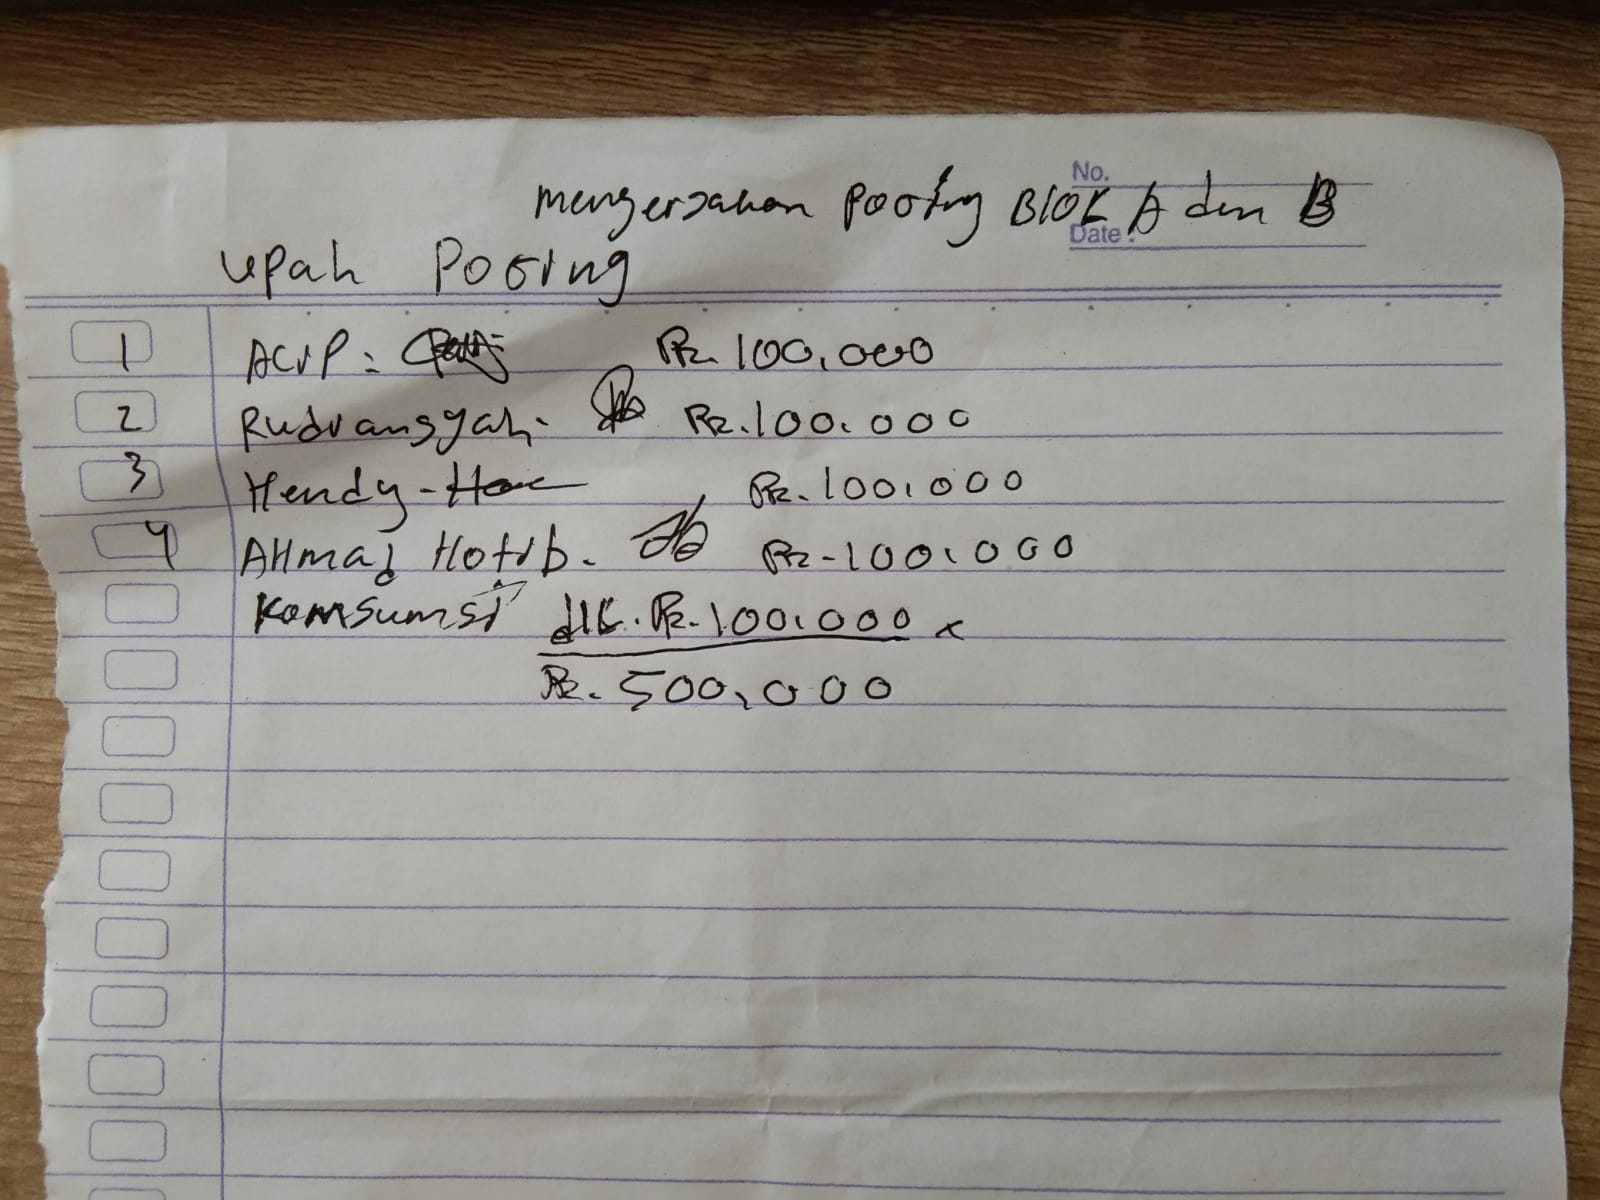 No.
mengerjakan Pooting Blok A dan B
Date :
upah Pooting
1 ACIP : Rp. 100.000
2 Rudiansyah. Rp. 100.000
3 Hendy - Rp. 100.000
4 AHmad Hotib. Rp - 100.000
Komsumsi dll. Rp. 100.000 x
Rp. 500.000